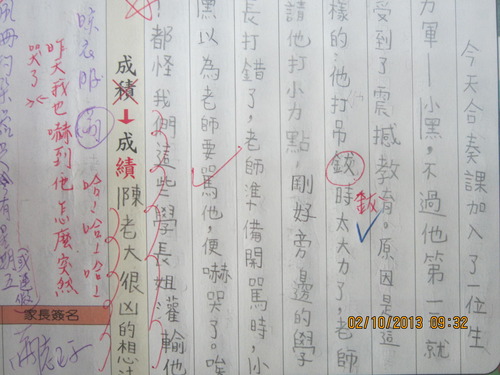 今天合奏課加入了一位生
力軍－小黑,不過他第一次就
受到了震撼教育。原因是這
樣的:他打吊鈸時太大力了,老師
鈸
請他打小力點,剛好旁邊的學
長打錯了,老師準備開罵時,小
黑以為老師要罵他,便嚇哭了。唉
!都怪我們這些學長姐灌輸他
成積→成績
陳老大很凶的想法
晾衣服
昨天我也嚇到他怎麼突然
哭了
哈!哈!哈!
家長簽名
02/10/2013 09:32